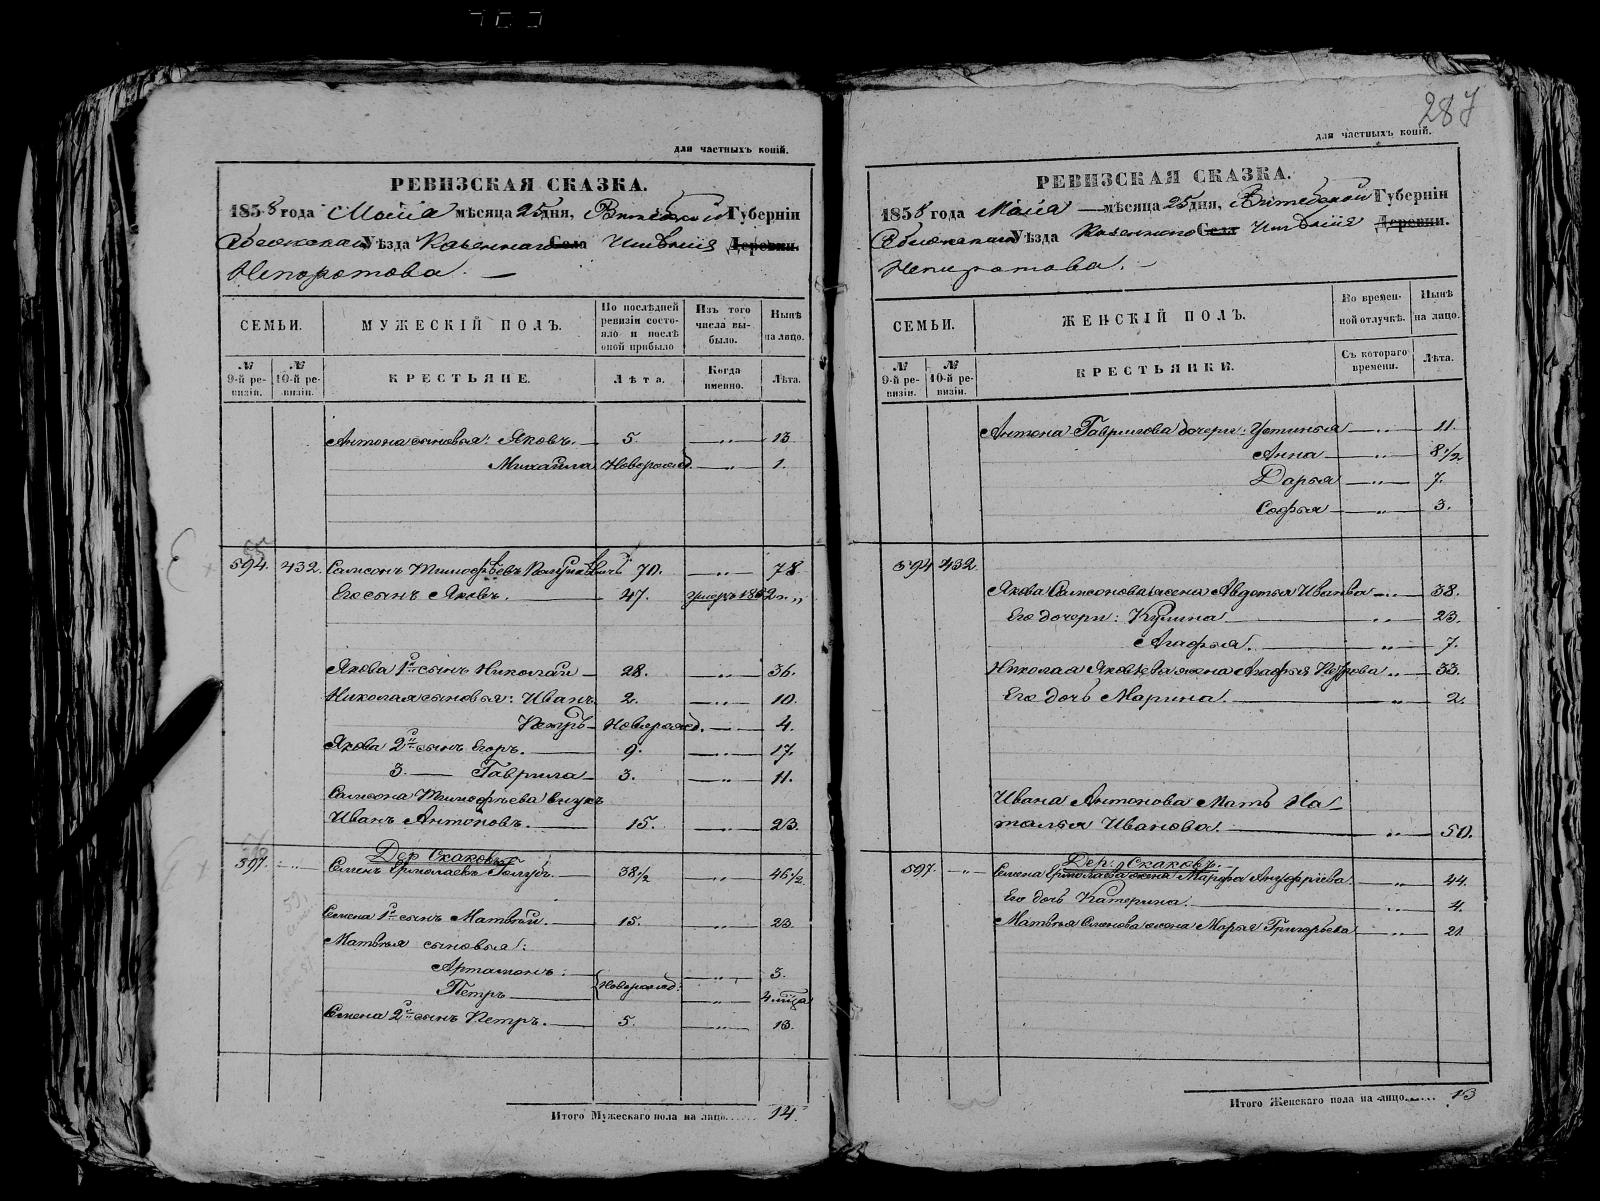 для частныхъ копій.
РЕВИЗСКАЯ СКАЗКА.
1858 года Маія мѣсяца 25 дня, Витебской Губерніи
Себежскаго Уѣзда Казеннаго Села Имѣнія Деревни.
Непоротова.
СЕМЬИ.
МУЖЕСКІЙ ПОЛЪ.
По послѣдней ревизіи состояло и послѣ оной прибыло
Изъ того числа выбыло.
Нынѣ на лицо.
№ 9-й ревизіи.
№ 10-й ревизіи.
КРЕСТЬЯНЕ.
Лѣта.
Когда именно.
Лѣта.
Антона сыновья: Яковъ. 5. „ 13
Михайла Новорожд. „ 1.
55
594. 432. Самсонъ Тимофѣевъ 70. „ 78
Его сынъ Яковъ. 47. умеръ 1852 г. „
Якова 1й сынъ Николай 28. „ 36.
Николая сыновья: Иванъ 2. „ 10.
Петръ Новорожд. „ 4.
Якова 2й сынъ Егоръ. 9. „ 17.
3. — Гаврила 3. „ 11.
Самсона Тимофѣева внукъ
Иванъ Антоновъ. 15. „ 23.
Дер. Скаковъ.
597. „ Семенъ Ермолаевъ Голубъ. 38 1/2 „ 46 1/2
Семена 1й сынъ Матвѣй. 15. „ 23
Матвѣя сыновья:
Артамонъ: „ 3.
Новорожд:
Петръ „ 4 мѣся
Семена 2й сынъ Петръ. 5. „ 13.
Итого Мужескаго пола на лицо...... 14
287
для частныхъ копій.
РЕВИЗСКАЯ СКАЗКА.
1858 года Маіа мѣсяца 25 дня, Витебской Губерніи
Себежскаго Уѣзда Казеннаго Села Имѣнія Деревни.
Непоротова.
СЕМЬИ.
ЖЕНСКІЙ ПОЛЪ.
Во временной отлучкѣ.
Нынѣ на лицо.
№ 9-й ревизіи.
№ 10-й ревизіи.
КРЕСТЬЯНКИ.
Съ котораго времени.
Лѣта.
Антона Гаврилова дочери: Устинья „ 11.
Анна „ 8 1/2.
Дарья „ 7.
Софья „ 3.
594 432
Якова Самсонова жена Авдотья Иванова „ 38.
Его дочери: Кулина „ 23.
Агафья. „ 7.
Николая Яковлева жена Агафья Петрова „ 33.
Его дочь Марина. „ 2.
Ивана Антонова мать На
талья Иванова. „ 50.
Дер. Скаковъ.
597 „ Семена Ермолаева жена Марфа Ануфріева. „ 44.
Его дочь Катерина. „ 4.
Матвѣя Семенова жена Марья Григорьева „ 21
Итого Женскаго пола на лицо...... 13